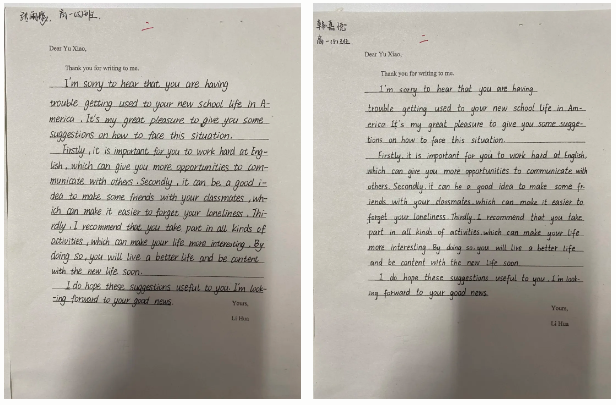 高一
班
二
Dear Yu Xiao,
Thank you for writing to me.
I'm sorry to hear that you are having
trouble getting used to your new school life in A-
merica. It's my great pleasure to give you some
suggestions on how to face this situation.
Firstly, it is important for you to work hard at Eng-
lish, which can give you more opportunities to com-
municate with others. Secondly, it can be a good i-
dea to make some friends with your classmates, wh-
ich can make it easier to forget your loneliness. Thi-
rdly. I recommend that you take part in all kinds of
activities, which can make your life more interesting. By
doing so, you will live a better life and be content
with the new life soon.
I do hope these suggestions useful to you. I'm look-
-ing forward to your good news.
Yours,
Li Hua
高一
班
二
Dear Yu Xiao,
Thank you for writing to me.
I'm sorry to hear that you are having
trouble getting used to your new school life in Am-
erica. It's my great pleasure to give you some sugge-
tions on how to face this situation.
Firstly, it is important for you to work hard at English,
which can give you more opportunities to communicate with
others. Secondly, it can be a good idea to make some fr-
iends with your classmates, which can make it easier to
forget your loneliness. Thirdly, I recommend that you take
part in all kinds of activities, which can make your life
more interesting. By doing so, you will live a better life
and be content with the new life soon.
I do hope these suggestions useful to you. I'm look-
ing forward to your good news.
Yours,
Li Hua